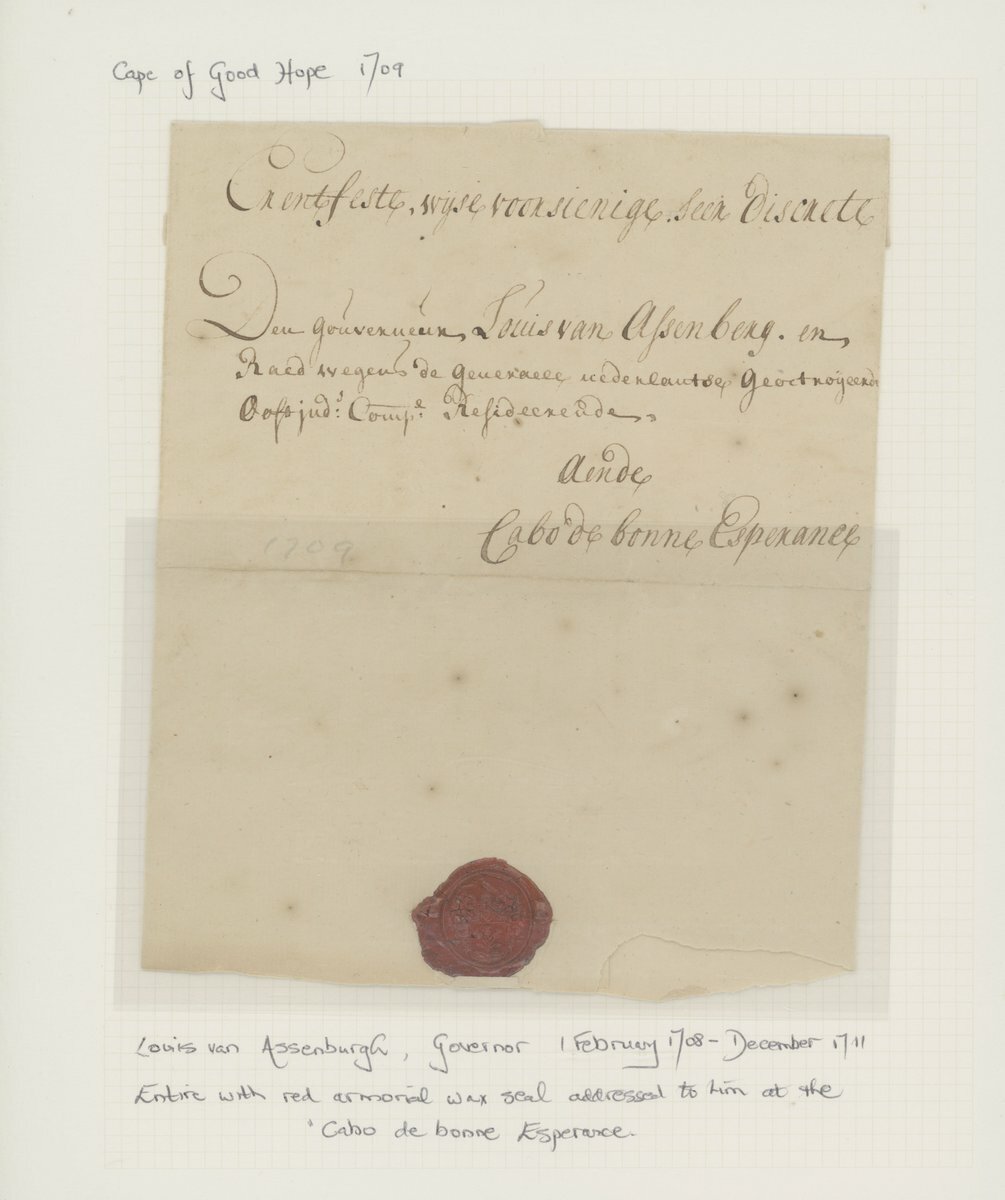 Cape of Good Hope 1709
Erentfeste, wijse voorsienige seer Discrete
Den Gouverneur Louis van Assenberg. en
Raed wegens de Generaele nederlantse Geoctroyeerde
Oostjnd:s Comp:e Resideerende
Aende
Cabo de bonne Esperance
1709
Louis van Assenburgh, Governor 1 February 1708 - December 1711
Entire with red armorial wax seal addressed to him at the
'Cabo de bonne Esperance.